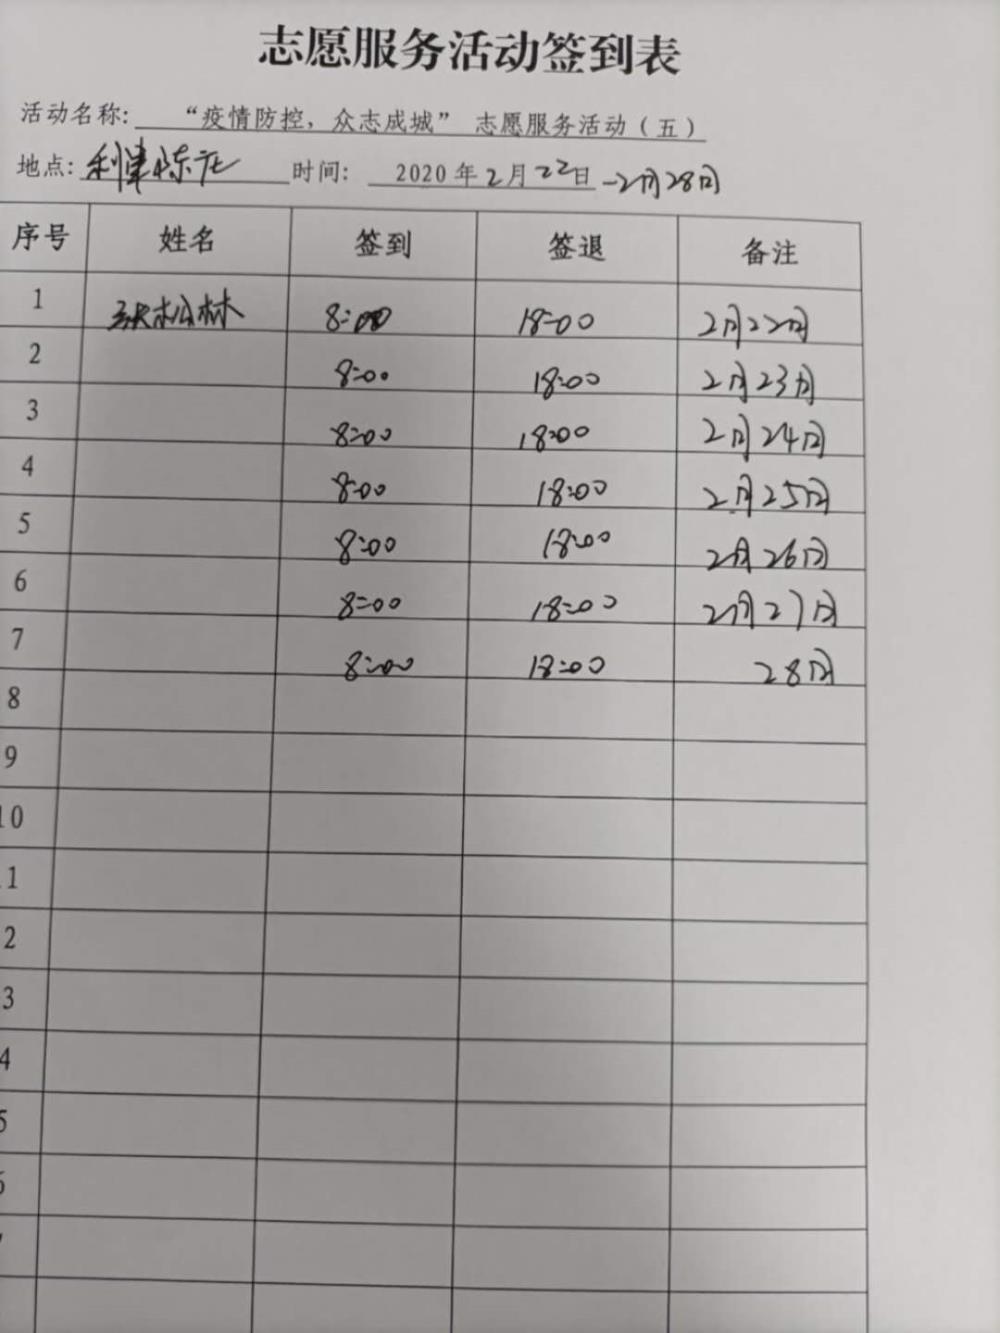 志愿服务活动签到表
活动名称: “疫情防控，众志成城” 志愿服务活动（五）
地点: 利津陈庄 时间: 2020年2月22日-2月28日
序号 姓名 签到 签退 备注
1 张松林 8:00 18:00 2月22日
2 8:00 18:00 2月23日
3 8:00 18:00 2月24日
4 8:00 18:00 2月25日
5 8:00 18:00 2月26日
6 8:00 18:00 2月27日
7 8:00 18:00 28日
8
9
10
1
2
3
4
5